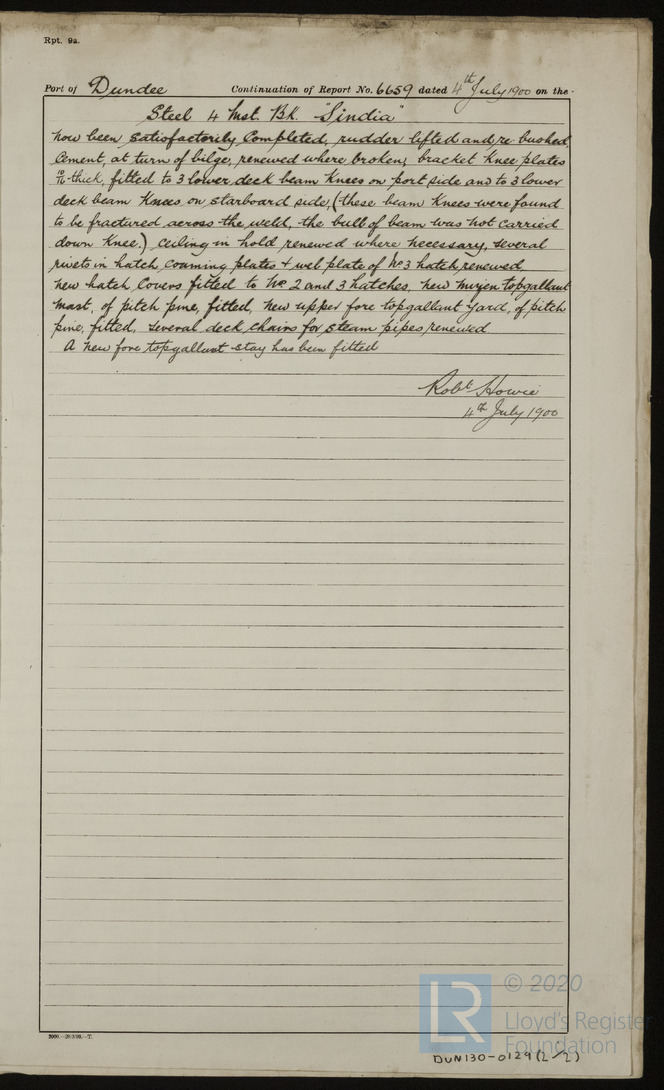 Rpt. 9a.
Port of Dundee Continuation of Report No. 6659 dated 4th July 1900 on the
Steel 4 Mst. Bk. "Sindia"
now been satisfactorily completed, rudder lifted and re bushed,
Cement, at turn of bilge, renewed where broken, bracket knee plates
thick, fitted to 3 lower deck beam knees on port side and to 3 lower
deck beam knees on starboard side, (these beam knees were found
to be fractured across the weld, the bulb of beam was not carried
down knee.) ceiling in hold renewed where necessary, several
rivets in hatch coaming plates + web plate of No 3 hatch renewed,
new hatch covers fitted to No 2 and 3 hatches, new mizen topgallant
mast, of pitch pine, fitted, new upper fore topgallant yard, of pitch
pine, fitted, several deck chairs for steam pipes renewed
A new fore topgallant stay has been fitted
Robt Howie
4th July 1900
2000.—20/3/99.—T.
© 2020
LR
Lloyd's Register
Foundation
DUN130-0129(2/2)